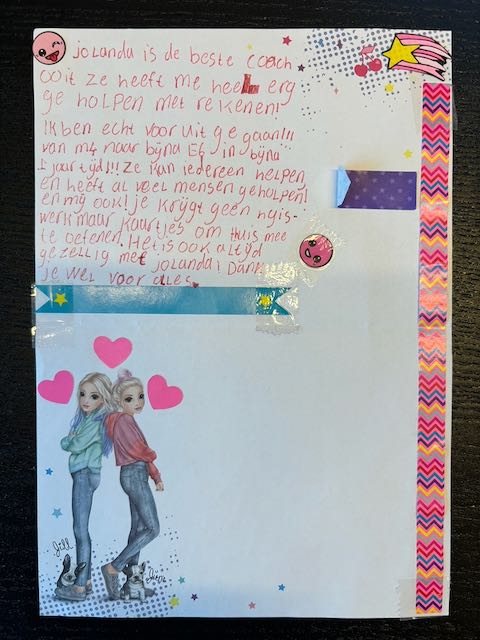 jolanda is de beste coach
ooit ze heeft me heel erg
ge holpen met rekenen!
Ik ben echt voor uit ge gaan!!!
van m4 naar bijna E6 in bijna
1 jaar tijd!!! ze kan iedereen helpen,
en heeft al veel mensen geholpen!
en mij ook! je krijgt geen huis-
werk maar kaartjes om thuis mee
te oefenen. Het is ook altijd
gezellig met jolanda! Dank
je wel voor alles
Jill